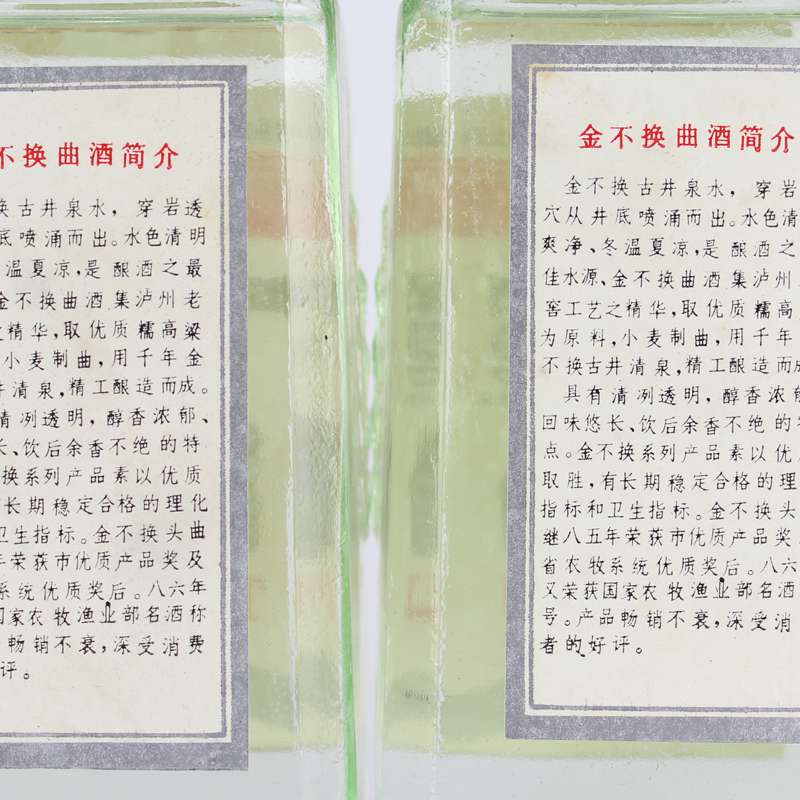 不换曲酒简介
换古井泉水，穿岩透
底喷涌而出。水色清明
温夏凉，是酿酒之最
金不换曲酒集泸州老
之精华，取优质糯高粱
小麦制曲，用千年金
井清泉，精工酿造而成。
清冽透明，醇香浓郁、
长、饮后余香不绝的特
换系列产品素以优质
有长期稳定合格的理化
卫生指标。金不换头曲
年荣获市优质产品奖及
系统优质奖后。八六年
国家农牧渔业部名酒称
畅销不衰，深受消费
评。
金不换曲酒简介
金不换古井泉水，穿岩
穴从井底喷涌而出。水色清
爽净、冬温夏凉，是酿酒之
佳水源、金不换曲酒集泸州
窖工艺之精华，取优质糯高
为原料，小麦制曲，用千年
不换古井清泉，精工酿造而成
具有清冽透明，醇香浓郁
回味悠长、饮后余香不绝的特
点。金不换系列产品素以优
取胜，有长期稳定合格的理
指标和卫生指标。金不换头
继八五年荣获市优质产品奖
省农牧系统优质奖后。八六
又荣获国家农牧渔业部名酒
号。产品畅销不衰，深受消
者的好评。